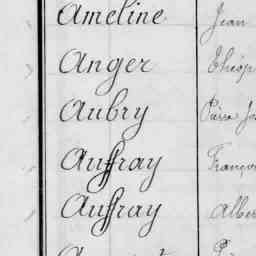 Ameline Jean
Anger Théop
Aubry Pierre Jo
Auffray Franço
Auffray Alber